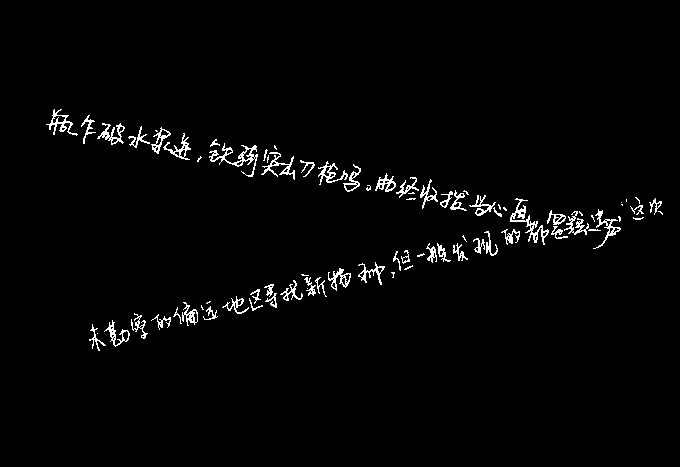 瓶乍破水浆迸,铁骑突出刀枪鸣。曲终收拨当心画
未勘察的偏远地区寻找新物种,但一般发现的都是 "这次